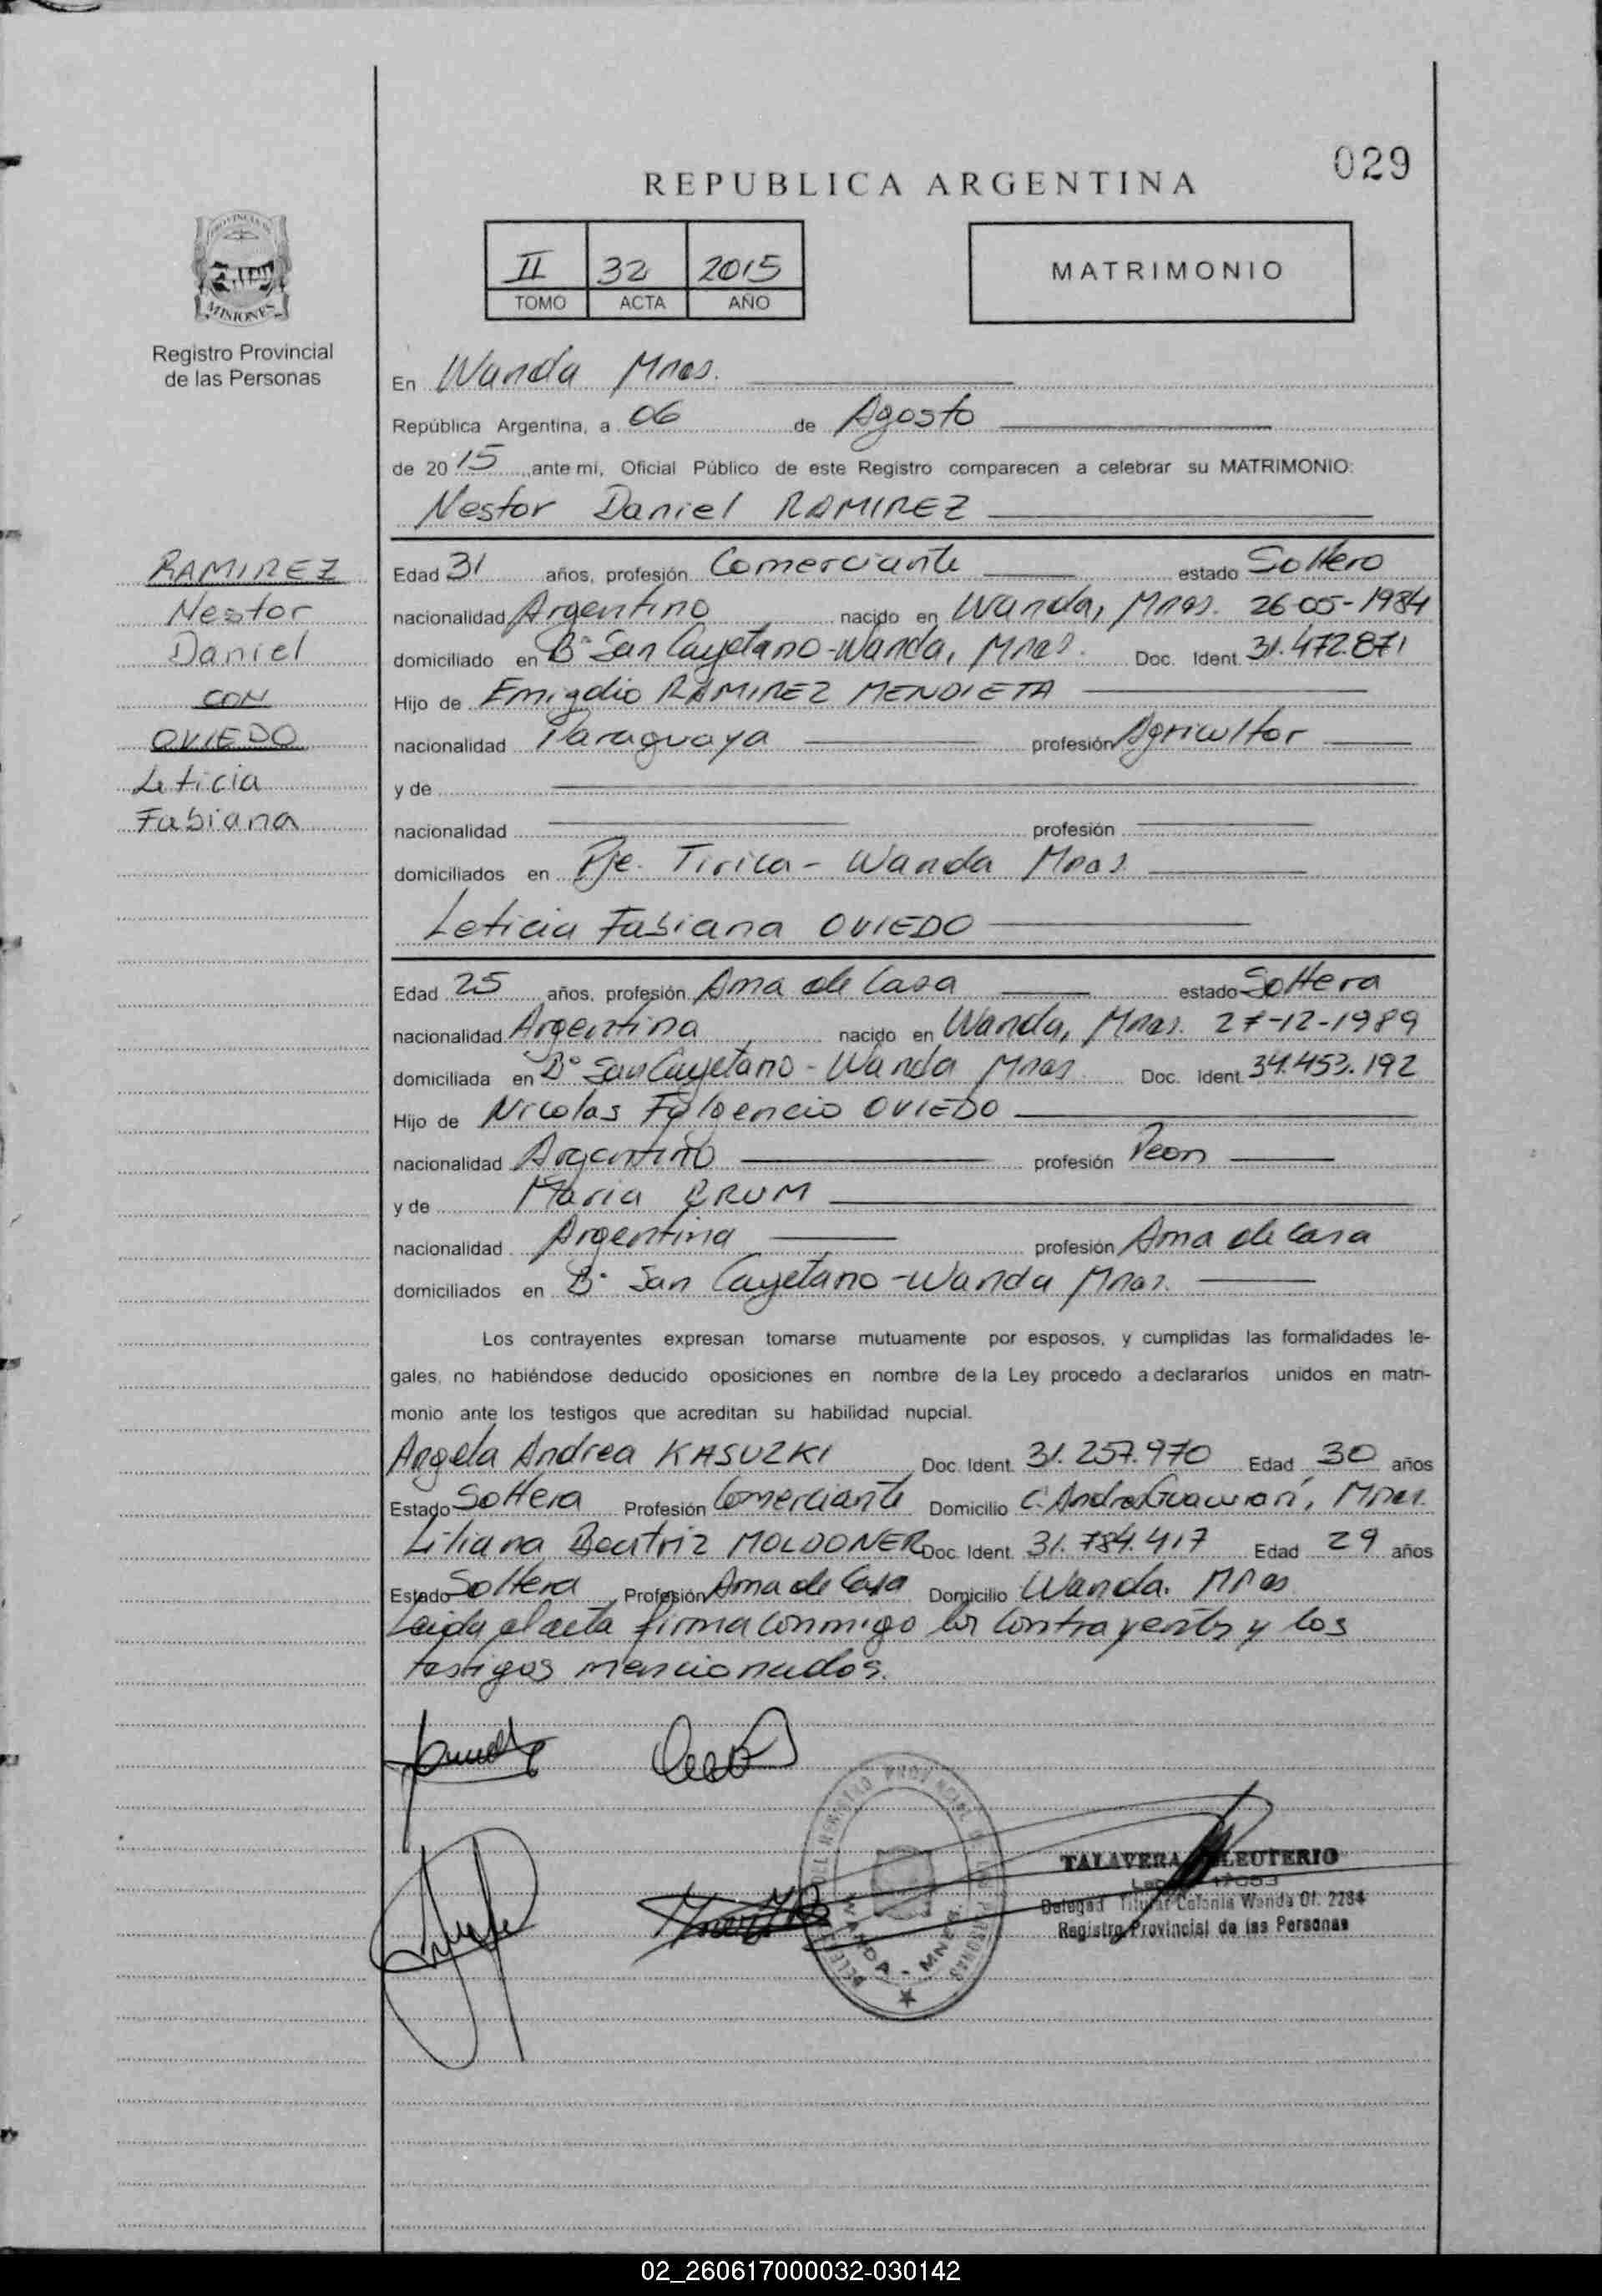 029
REPUBLICA ARGENTINA
PROVINCIA DE
MISIONES
Registro Provincial
de las Personas
II 32 2015
TOMO ACTA AÑO
MATRIMONIO
En Wanda Mnes.
República Argentina, a 06 de Agosto
de 2015, ante mi, Oficial Público de este Registro comparecen a celebrar su MATRIMONIO:
Nestor Daniel RAMIREZ
RAMIREZ
Nestor
Daniel
CON
OVIEDO
Leticia
Fabiana
Edad 31 años, profesión Comerciante estado Soltero
nacionalidad Argentino nacido en Wanda, Mnes. 26-05-1984
domiciliado en B° San Cayetano-Wanda, Mnes. Doc. Ident. 31.472.871
Hijo de Emigdio RAMIREZ MENDIETA
nacionalidad Paraguaya profesión Agricultor
y de
nacionalidad profesión
domiciliados en Pje. Tirica - Wanda Mnes.
Leticia Fabiana OVIEDO
Edad 25 años, profesión Ama de Casa estado Soltera
nacionalidad Argentina nacido en Wanda, Mnes. 27-12-1989
domiciliada en B° San Cayetano - Wanda Mnes Doc. Ident. 34.453.192
Hijo de Nicolas Fulgencio OVIEDO
nacionalidad Argentino profesión Peon
y de Maria BRUM
nacionalidad Argentina profesión Ama de Casa
domiciliados en B° San Cayetano-Wanda Mnes.
Los contrayentes expresan tomarse mutuamente por esposos, y cumplidas las formalidades le-
gales, no habiéndose deducido oposiciones en nombre de la Ley procedo a declararlos unidos en matri-
monio ante los testigos que acreditan su habilidad nupcial.
Angela Andrea KASUZKI Doc. Ident. 31.257.970 Edad 30 años
Estado Soltera Profesión Comerciante Domicilio C. Andres Guacurari, Mnes.
Liliana Beatriz MOLDONER Doc. Ident. 31.784.417 Edad 29 años
Estado Soltera Profesión Ama de Casa Domicilio Wanda. Mnes
Leida el acta firma conmigo los contrayentes y los
testigos mencionados.
TALAVERA ELEUTERIO
Delegad Titular Colonia Wanda Of. 2284
Registro Provincial de las Personas
WANDA - MNES.
02_260617000032-030142